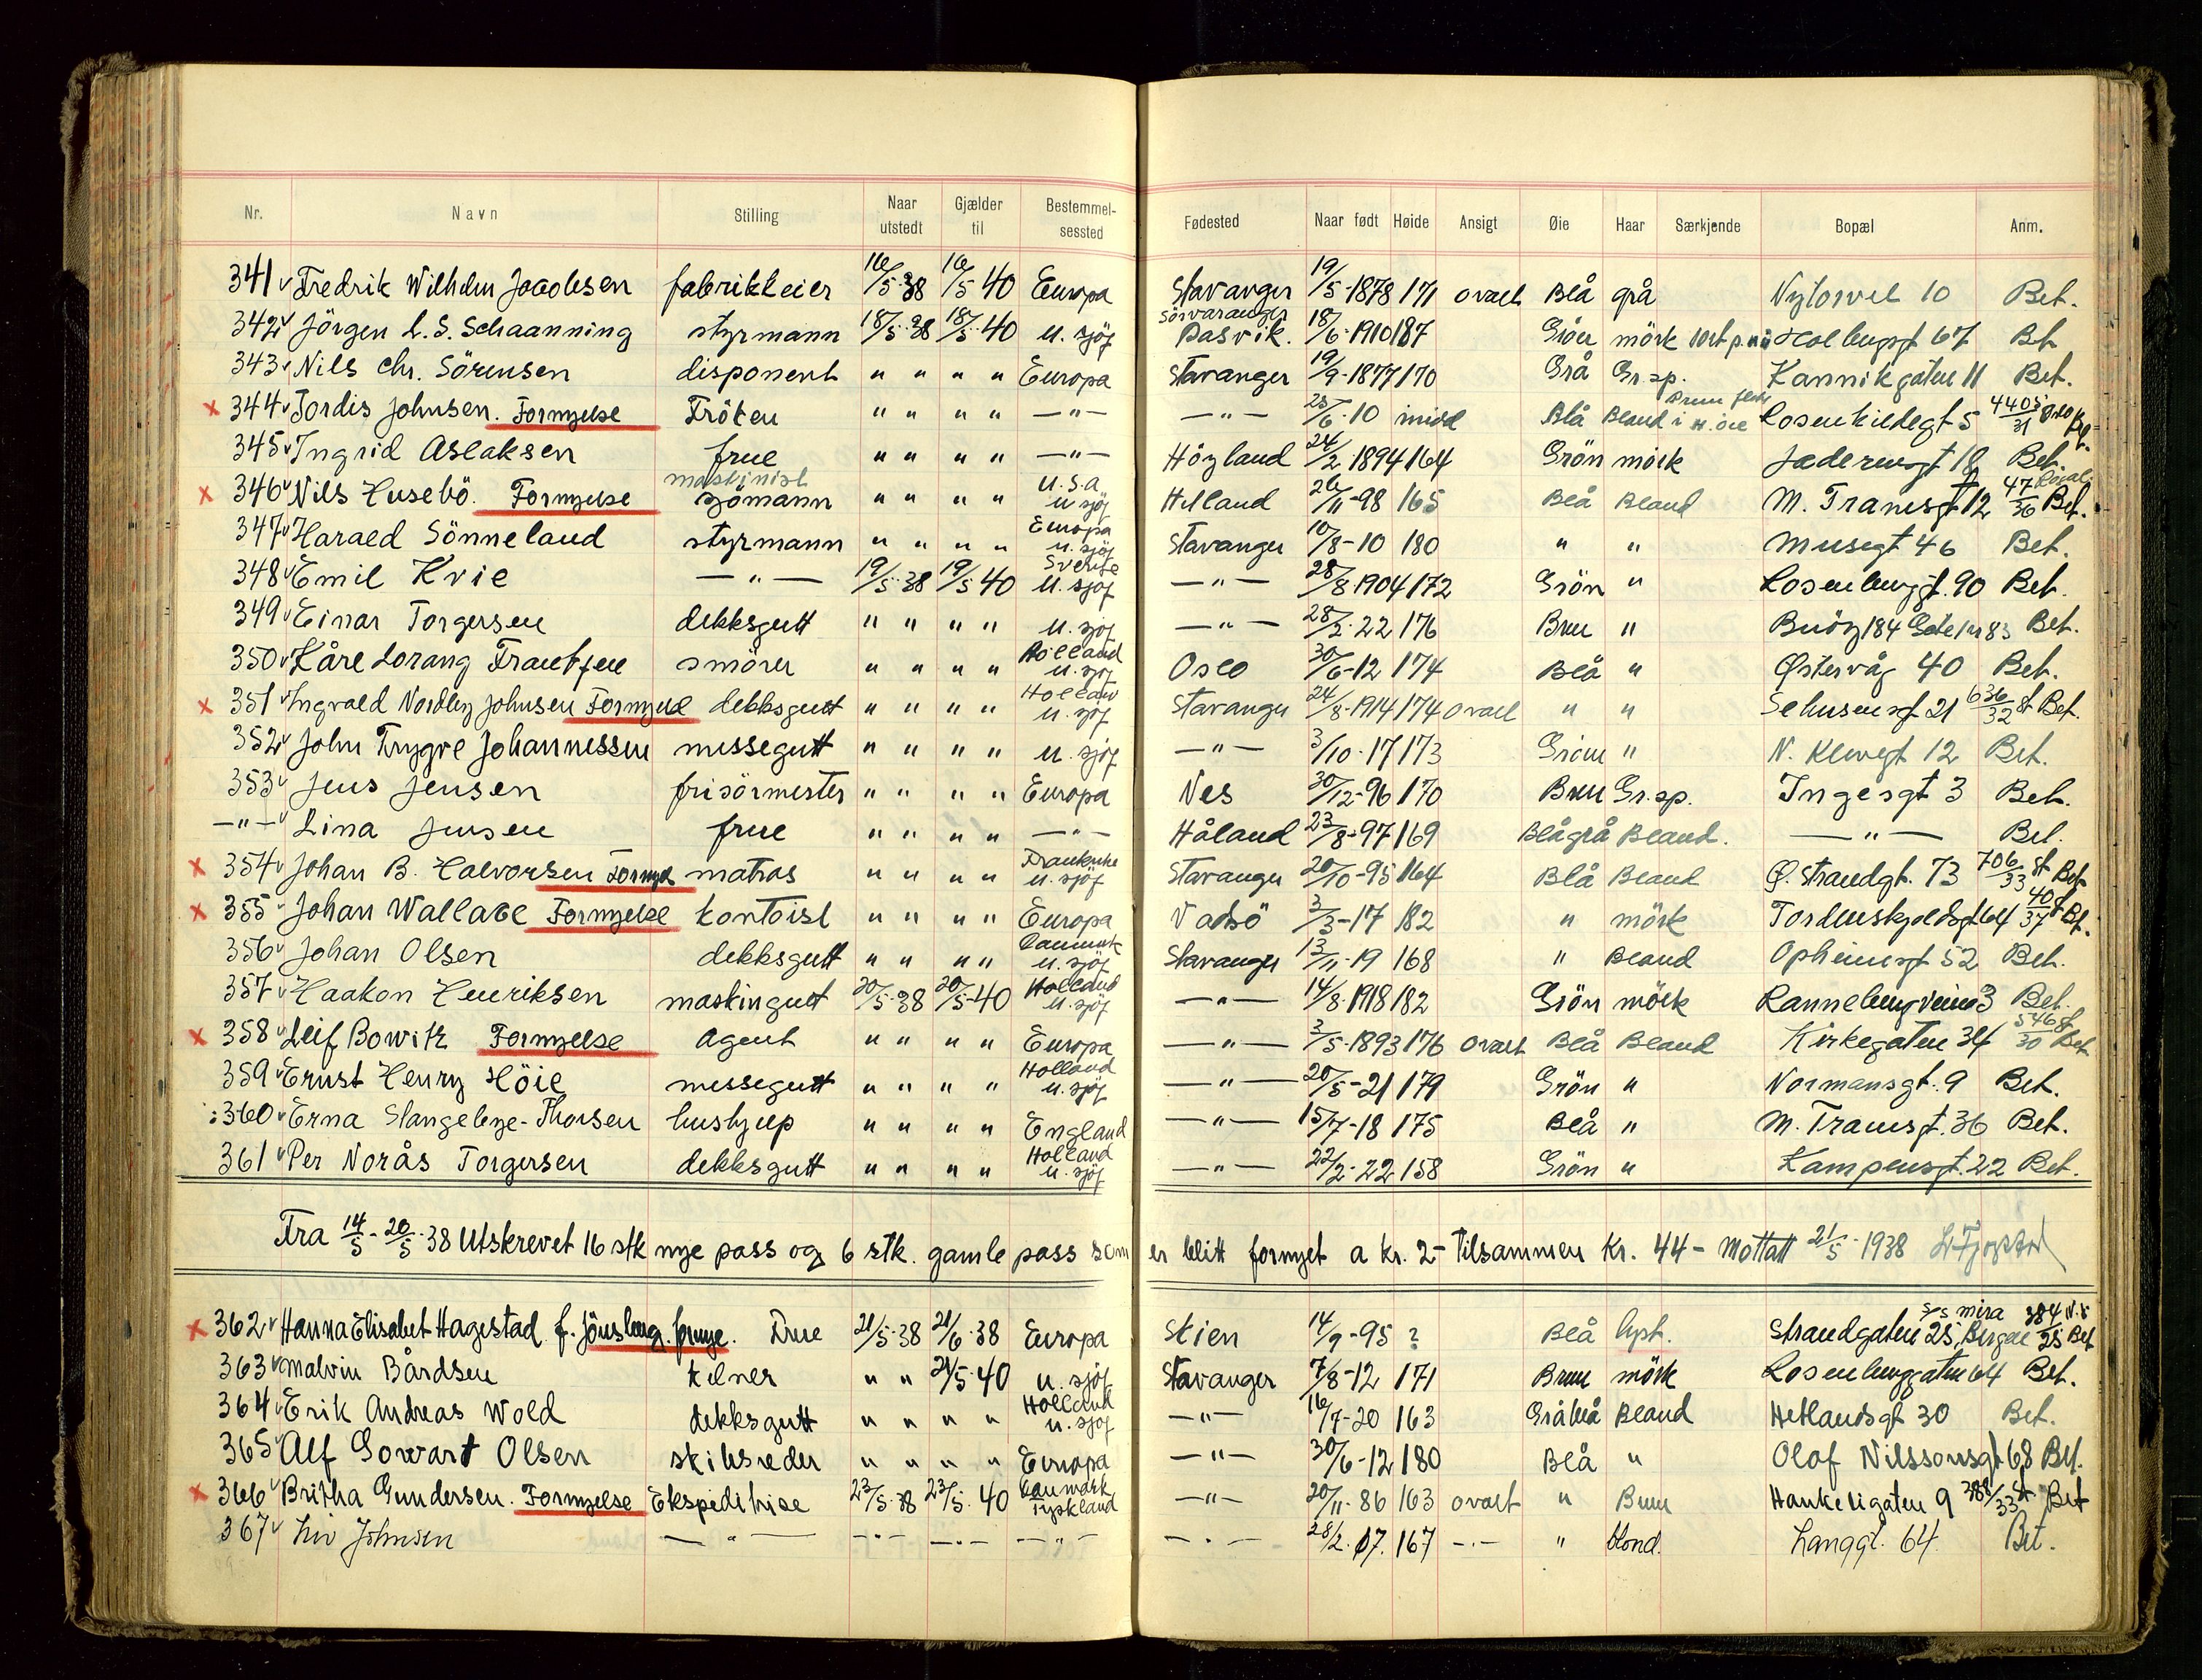 Nr. Navn Stilling Naar utstedt Gjælder til Bestemmelsessted Fødested Naar født Høide Ansigt Øie Haar Særkjende Bopæl Anm.
341 Fredrik Wilhelm Jacobsen fabrikkeier 16/5-38 16/5 40 Europa Stavanger 19/5-1878 171 ovalt Blå grå Nytorvet 10 Bet.
342 Jörgen L. S. Schaanning styrmann 18/5-38 18/5-40 u. sjöf Sörvaranger Pasvik. 18/6-1910 187 Grön mörk Holbergsgt 67 Bet
343 Nils Chr. Sörensen disponent " " " " Europa Stavanger 19/9-1877 170 Grå Gr.sp. Kannikgaten 11 Bet.
x 344 Tordis Johnsen. Fornyelse Fröken " " " " —"— —"— 25/6-10 midd Blå Blond i H. öie Rosenkildegt 5 4405/31
345 Ingrid Aslaksen frue " " " " —"— Höyland 24/2-1894 164 Grön mörk Jaderengt 18 Bet.
x 346 Nils Husebö. Fornyelse maskinist sjömann " " " " U.S.A u sjöf Hetland 26/11-98 165 Blå Blond M. Tramsgt 12 47/36 Bet.
347 Harald Sönneland styrmann " " " " Europa u. sjöf Stavanger 10/8-10 180 " " Musegt 46 Bet.
348 Emil Kvie —"— 19/5-38 19/5-40 Sverige u. sjöf —"— 28/8-1904 172 Grön " Rosenberggt. 90 Bet.
349 Einar Torgersen dekksgutt " " " " u. sjöf —"— 28/2-22 176 Brun " Buöy 184 Gate nr 83 Bet.
350 Kåre Lorang Frantzen smörer " " " " Holland u. sjöf Oslo 30/6-12 174 Blå " Østervåg 40 Bet.
x 351 Ingvald Nordby Johnsen Fornyed dekksgutt " " " " Holland u. sjöf Stavanger 24/8-1914 174 Ovalt " " Sehusensgt 21 636/32 St Bet.
352 John Trygve Johannessen messegutt " " " " u. sjöf —"— 3/10-17 173 Grönn " N. Klevegt 12 Bet.
353 Jens Jensen frisörmester " " " " Europa Nes 30/12-96 170 Brun Gr.sp. Ingesgt 3 Bet.
—"— Lina Jensen frue " " " " —"— Håland 23/8-97 169 Blågrå Blond. —"— Bet.
x 354 Johan B. Halvorsen Fornyd matros " " " " Frankrike u. sjöf Stavanger 20/10-95 164 Blå Blond Ø. Strandgt. 73 706/33 St Bet
x 355 Johan Wallace Fornyelse kontorist " " " " Europa Vadsö 3/3-17 182 " mörk Tordenskjoldsgt 64 40/37 Bet.
356 Johan Olsen dekksgutt " " " " Danmark u. sjöf Stavanger 13/11-19 168 " Blond Opheimsgt 52 Bet.
357 Haakon Henriksen maskingutt 20/5-38 20/5-40 Holland u. sjöf —"— 14/8-1918 182 Grön mörk Ranneberg veien 3 Bet.
x 358 Leif Bowitz Fornyelse Agent " " " " Europa —"— 3/5-1893 176 Ovalt Blå Blond Kirkegaten 34 546/30 St Bet
359 Ernst Henry Höie messegutt " " " " Holland u. sjöf —"— 20/5-21 179 Grön " Normansgt. 9 Bet.
360 Erna Slangebye-Thorsen hushjelp " " " " England —"— 15/7-18 175 Blå " M. Tramsgt. 36 Bet.
361 Per Norås Torgersen dekksgutt " " " " Holland u. sjöf —"— 22/2-22 158 Grön " Kampensgt. 22 Bet.
Fra 14/5 - 20/5-38 Utskrevet 16 stk nye pass og 6 stk. gamle pass som er blitt fornyet a kr. 2- Tilsammen Kr. 44- Mottatt 21/5-1938
x 362 Hanna Elisabet Hagestad f. Jönsberg. fornye. Frue 21/5-38 21/6-38 Europa Skien 14/9-95 ? Blå lyst. Strandgaten 25, Bergen S/S mira 384/25 Bet
363 Malvin Bårdsen kelner " " 21/5-40 u. sjöf Stavanger 7/8-12 171 Brun mörk Rosenberggaten 64 Bet.
364 Erik Andreas Wold dekksgutt " " " " Holland u. sjöf —"— 16/7-20 163 Gråblå Blond Hetlandsgt 30 Bet.
365 Alf Gowart Olsen skibsreder " " " " Europa —"— 30/6-12 180 Blå " Olaf Nilssonsgt 68 Bet.
x 366 Britha Gundersen. Fornyelse Ekspeditrise 23/5-38 23/5-40 Danmark Tyskland —"— 20/11-86 163 ovalt " Brun Haukeligaten 9 388/33 St Bet
367 Liv Johnsen —"— —"— —"— —"— —"— 28/2-07. 167 —"— " blond. Langgt. 64 Bet.